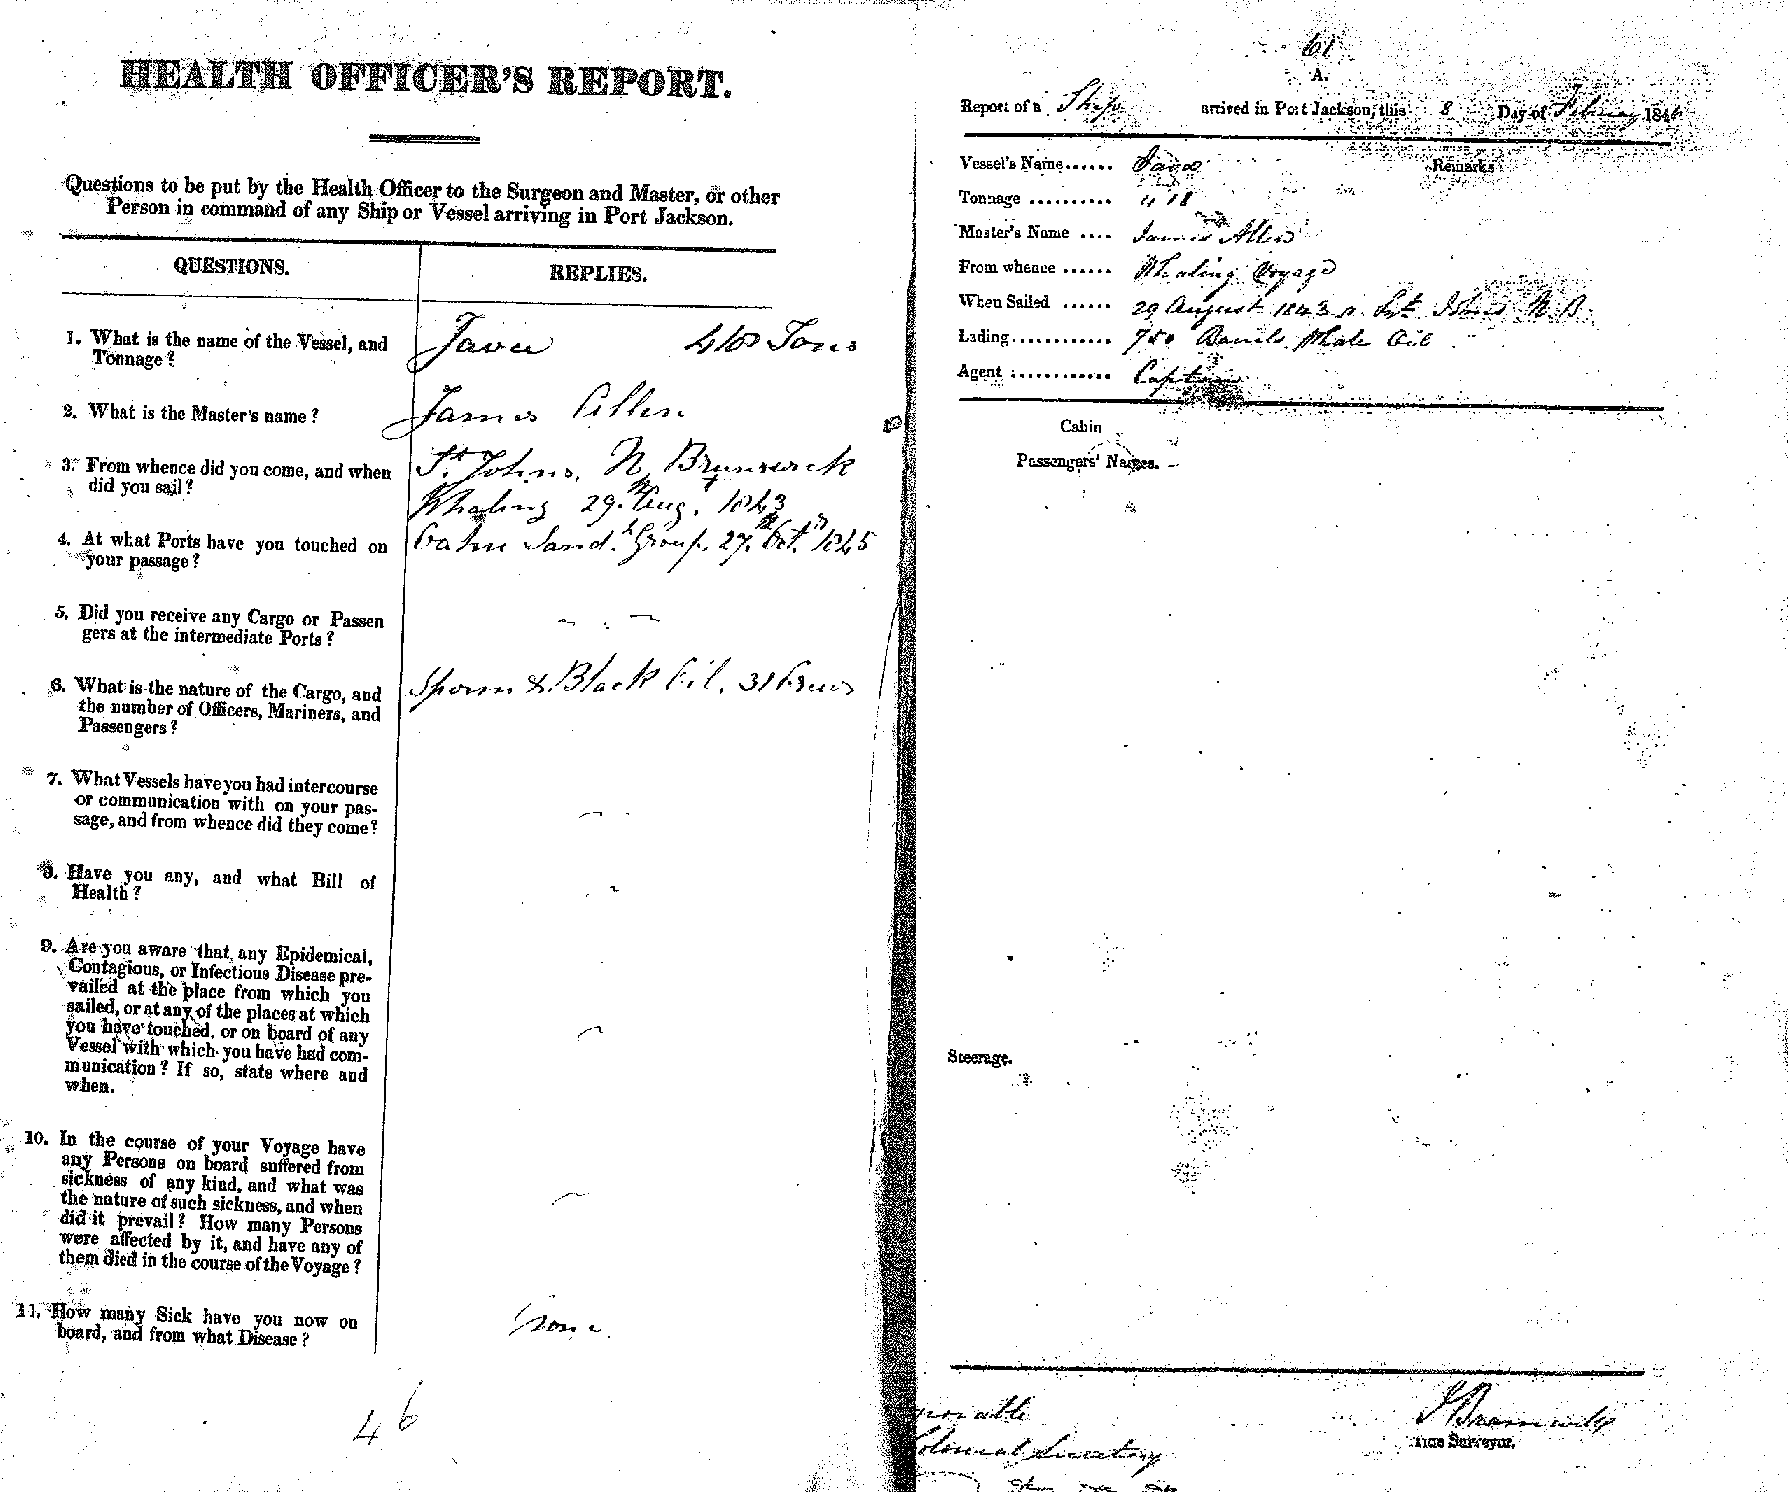 HEALTH OFFICER'S REPORT.
Questions to be put by the Health Officer to the Surgeon and Master, or other
Person in command of any Ship or Vessel arriving in Port Jackson.
QUESTIONS.
REPLIES.
1. What is the name of the Vessel, and
Tonnage?
Java 418 Tons
2. What is the Master's name?
James Allen
3. From whence did you come, and when
did you sail?
St. Johns, N. Brunswick
Whaling 29th Aug. 1843
4. At what Ports have you touched on
your passage?
Sand.h Group, 27th Oct.r 1845
5. Did you receive any Cargo or Passen
gers at the intermediate Ports?
6. What is the nature of the Cargo, and
the number of Officers, Mariners, and
Passengers?
Sperm & Black Oil. 31 Crew
7. What Vessels have you had intercourse
or communication with on your pas-
sage, and from whence did they come?
8. Have you any, and what Bill of
Health?
9. Are you aware that any Epidemical,
Contagious, or Infectious Disease pre-
vailed at the place from which you
sailed, or at any of the places at which
you have touched, or on board of any
Vessel with which you have had com-
munication? If so, state where and
when.
10. In the course of your Voyage have
any Persons on board suffered from
sickness of any kind, and what was
the nature of such sickness, and when
did it prevail? How many Persons
were affected by it, and have any of
them died in the course of the Voyage?
11. How many Sick have you now on
board, and from what Disease?
None.
46
61
A.
Report of a Ship arrived in Port Jackson, this 8 Day of February 1846
Vessel's Name...... Java
Remarks
Tonnage .......... 418
Master's Name .... James Allen
From whence ...... Whaling Voyage
When Sailed ...... 29 August 1843 St. Johns N.B.
Lading............ 750 Barrels Whale Oil
Agent ............ Captain
Cabin
Passengers' Names.
Steerage.
Colonial Secretary
Tide Surveyor.